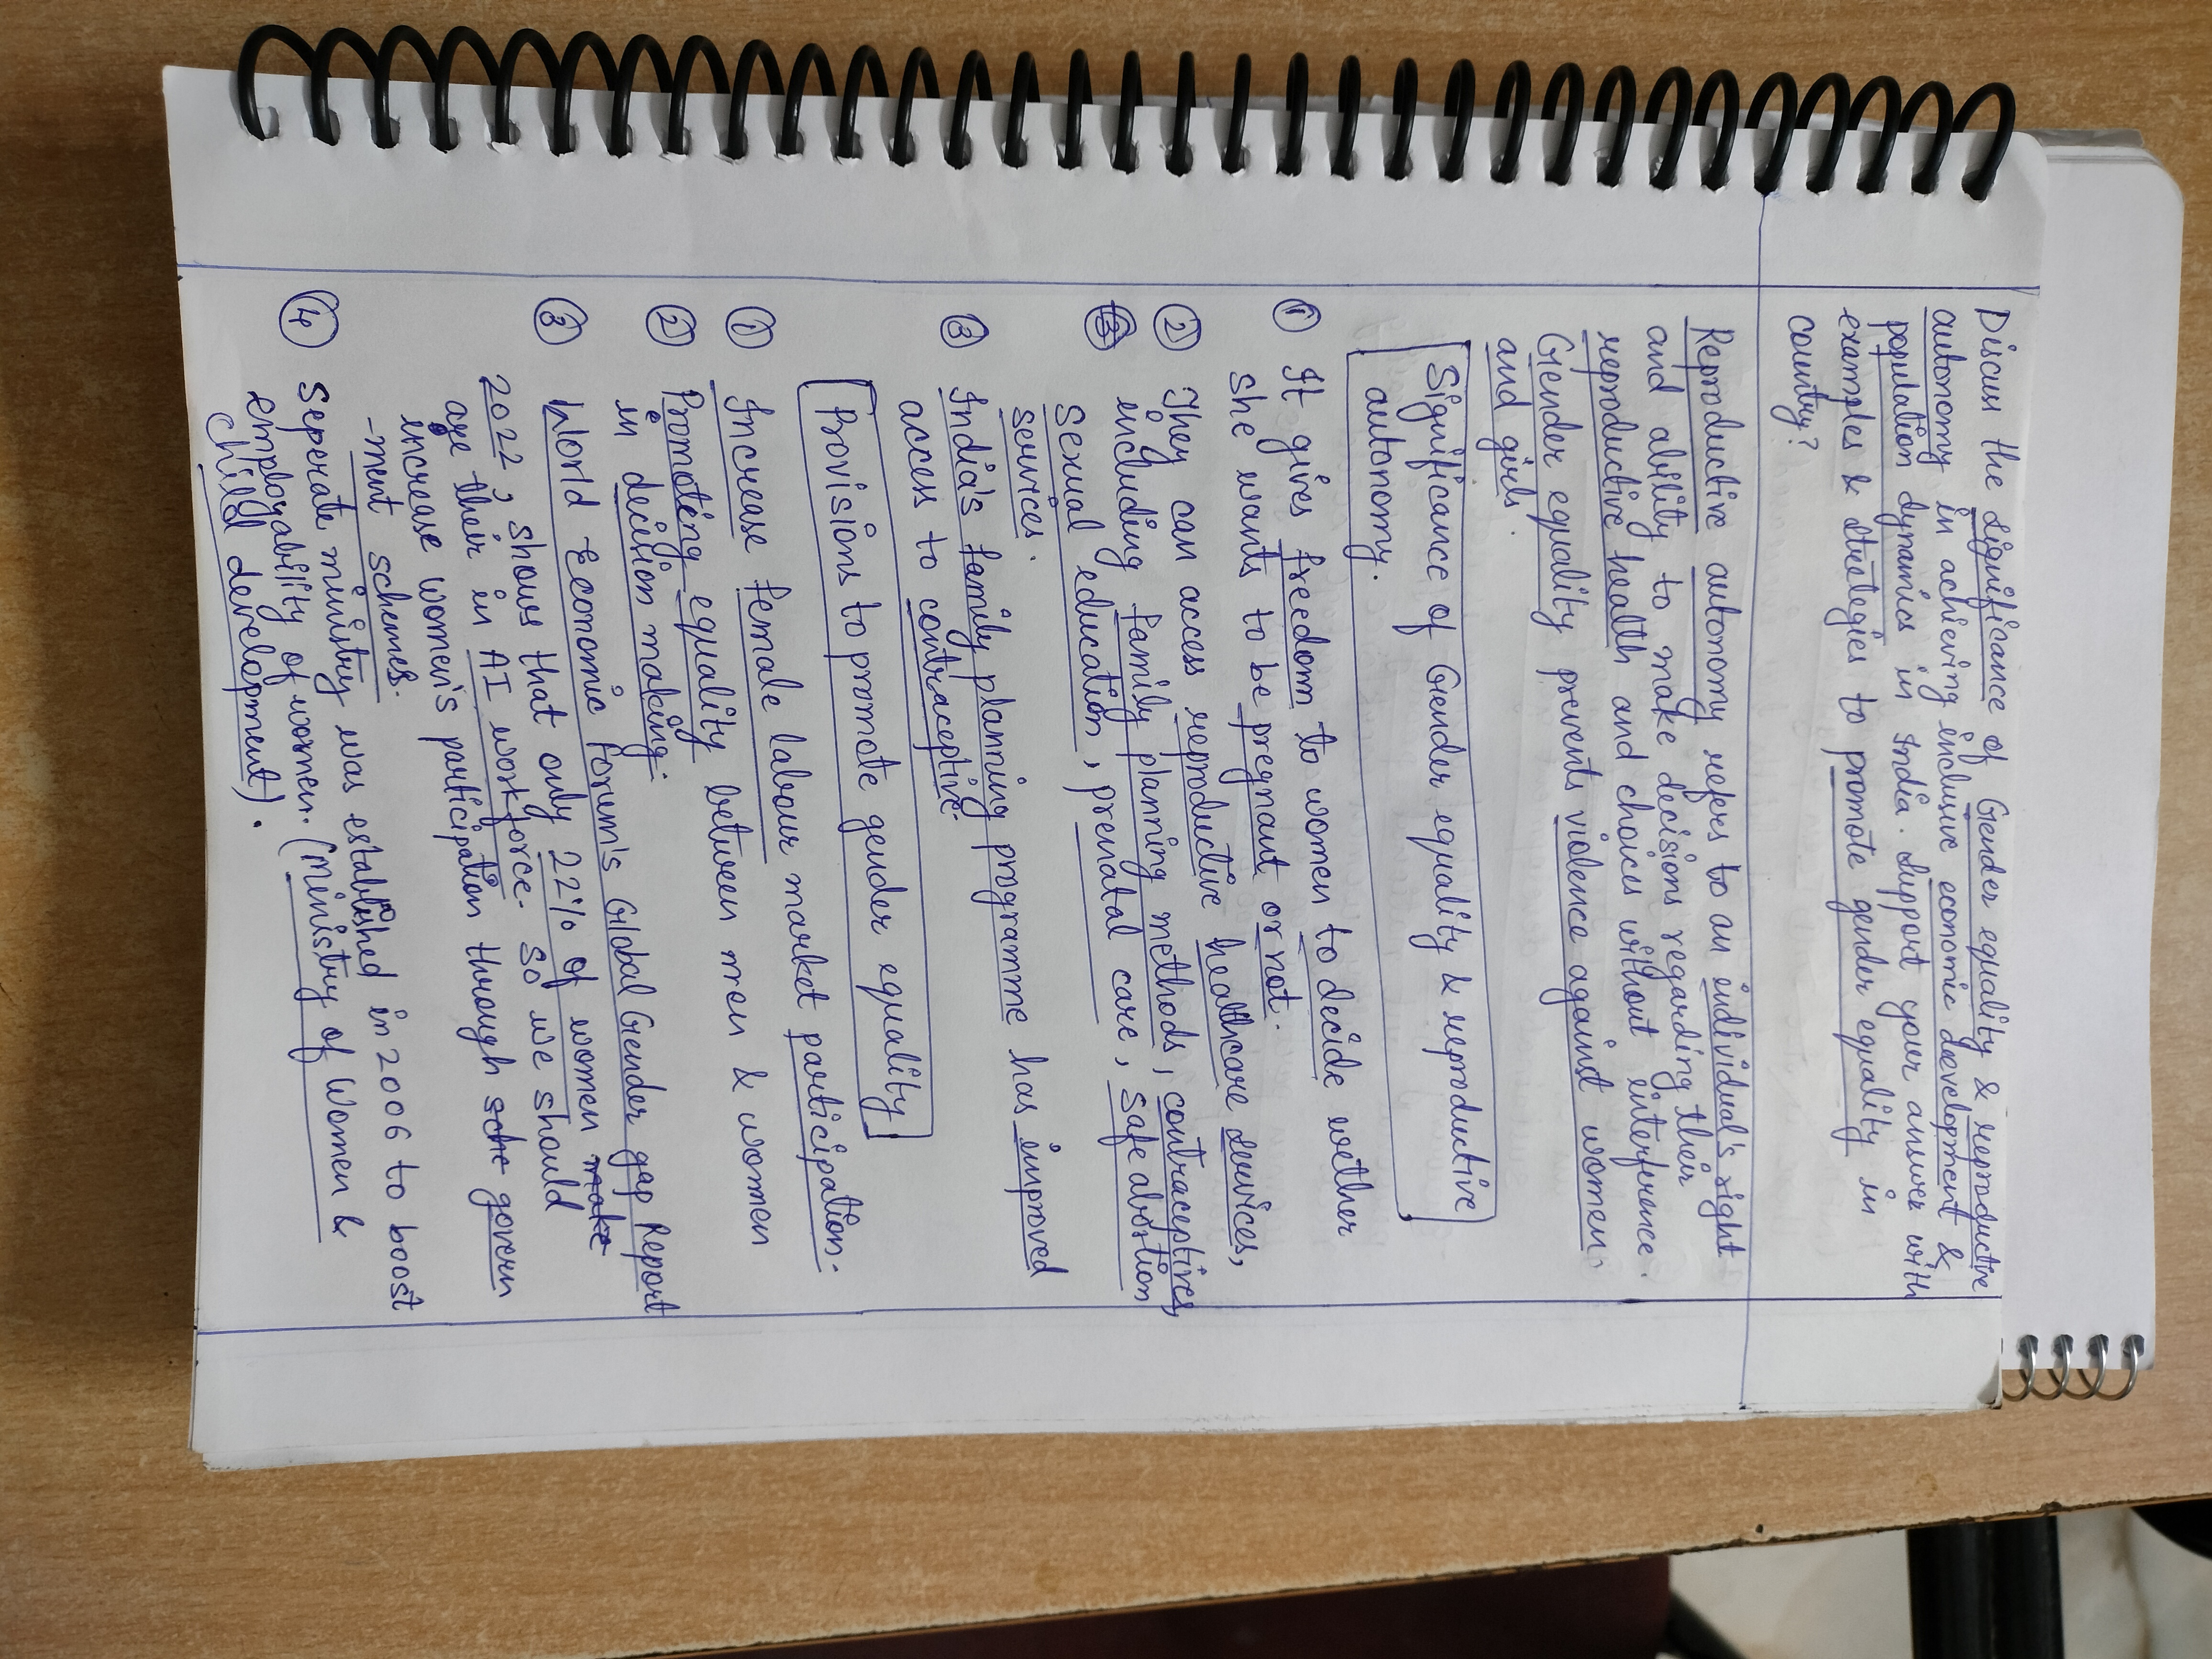 Discuss the significance of Gender equality & reproductive
autonomy in achieving inclusive economic development &
population dynamics in India. Support your answer with
examples & strategies to promote gender equality in
country?
Reproductive autonomy refers to an individual's right
and ability to make decisions regarding their
reproductive health and choices without interference.
Gender equality prevents violence against women
and girls.
Significance of Gender equality & reproductive
autonomy.
① It gives freedom to women to decide wether
she wants to be pregnant or not.
② They can access reproductive healthcare services,
including family planning methods, contraceptives,
Sexual education, prenatal care, safe abortion
services.
③ India's family planning programme has improved
access to contraceptive.
Provisions to promote gender equality
① Increase female labour market participation.
② Promoting equality between men & women
in decision making.
③ World Economic Forum's Global Gender gap Report
2022, shows that only 22% of women make
are their in AI workforce. So we should
increase women's participation through sche govern
-ment schemes.
④ Seperate ministry was established in 2006 to boost
employability of women. (Ministry of Women &
Child development).